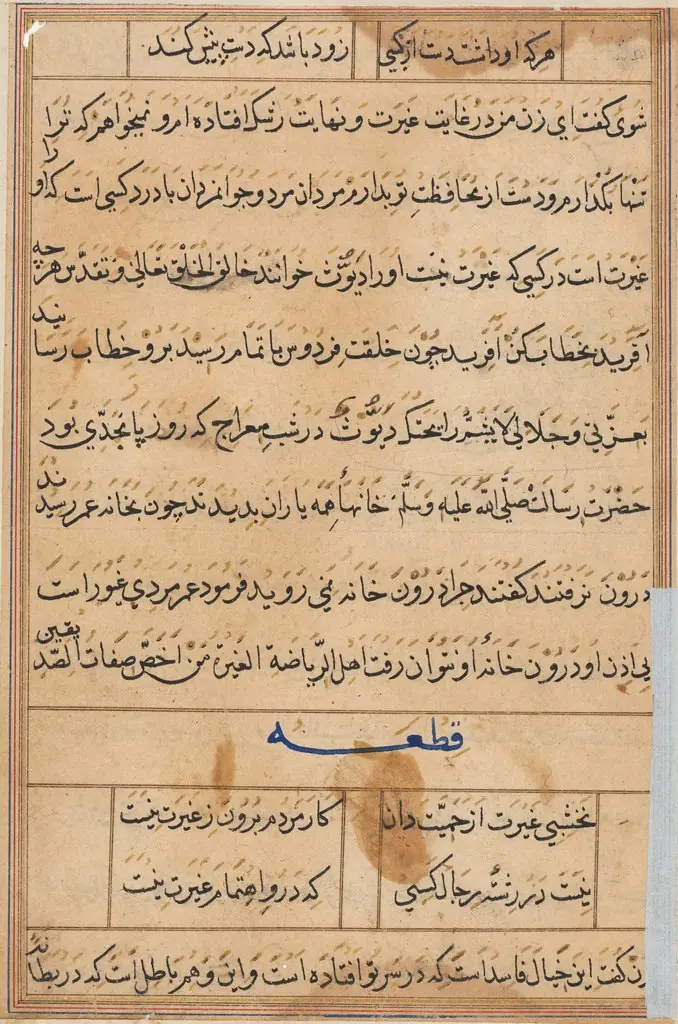 هر که او داشت دست از کسی زود باشد که دست پیش کند
شوی گفت ای زن من در غایت غیرت و نهایت رشک افتاده ام و نمیخواهم که ترا
تنها بگذارم و دست از محافظت تو بدارم مردان مرد و جوانمردان با درد کسی است که او را
غیرت است در کسی که غیرت نیست او را دیّوث خوانند خالق الخلق تعالی و تقدّس هرچه
آفرید بخطاب کن آفرید چون خلقت فردوس باتمام رسید برو خطاب رسانید
بعزّتی و جلالی لا یشمّ رایحتک دیّوث در شب معراج که روز پانجدی بود
حضرت رسالت صلّی الله علیه وسلّم خانهاء همه یاران بدیدند چون بخانه عمر رسیدند
درون نرفتند گفتند چرا درون خانه نمی روید فرمود عمر مردی غیور است
بی اذن او درون خانهٔ او نتوان رفت اهل الریاضة الغیرة من اخصّ صفات الصّدیقین
قطعه
نخشبی غیرت از حمیّت دان کار مردم برون ز غیرت نیست
نیست در رشتهٔ رجال کسی که درو اهتمام غیرت نیست
زن گفت این خیال فاسد است که در سر تو افتاده است و این وهم باطل است که در بطانه